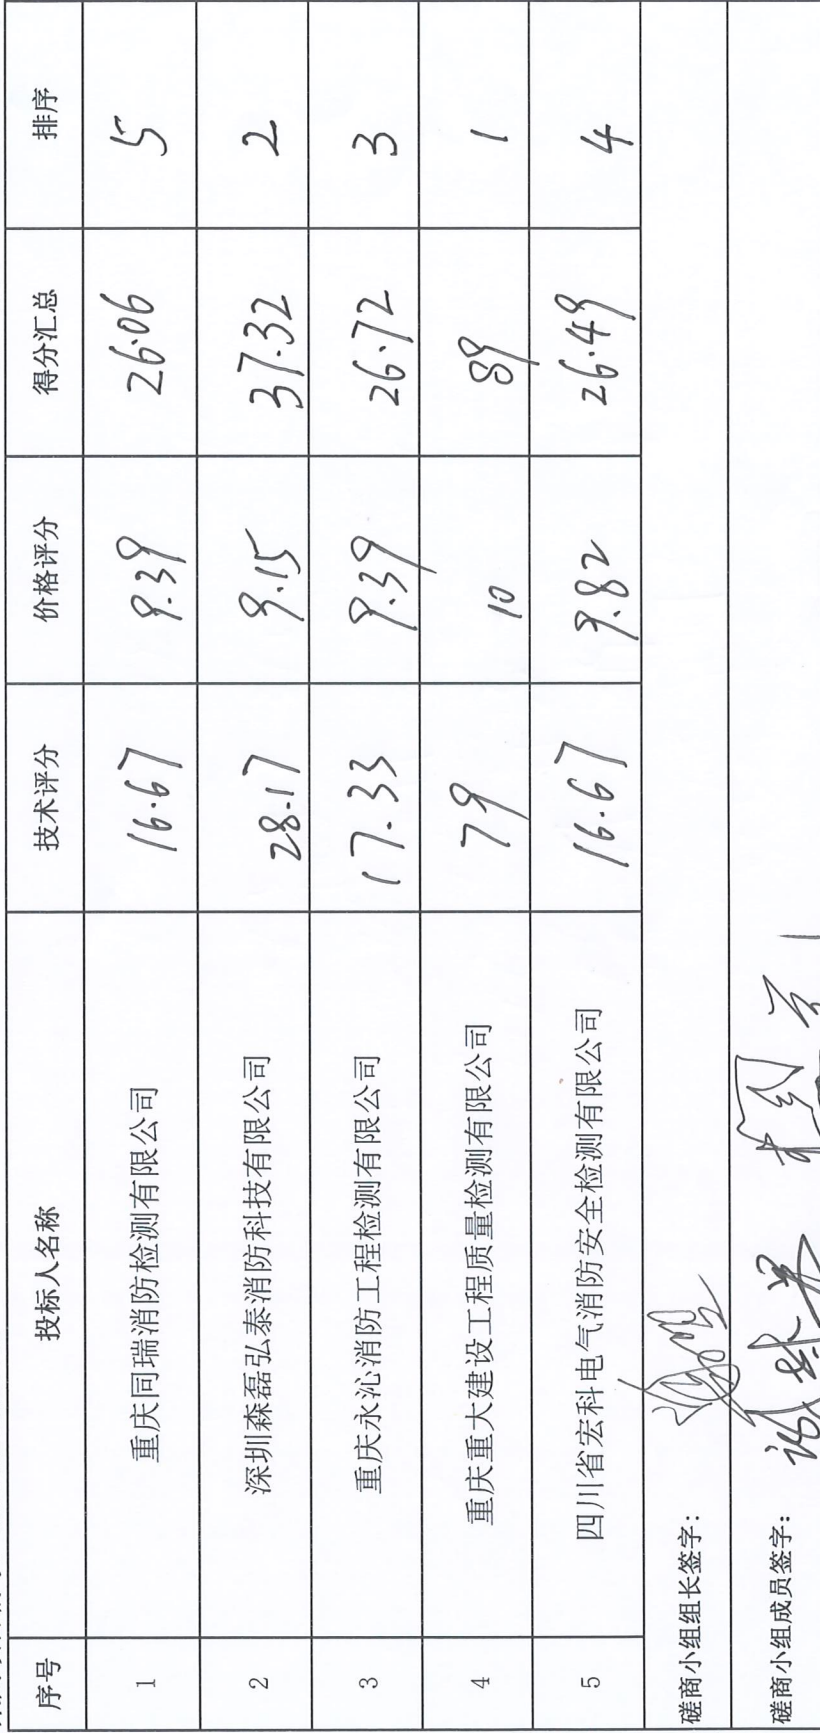 序号 投标人名称 技术评分 价格评分 得分汇总 排序
1 重庆同瑞消防检测有限公司 16.67 9.39 26.06 5
2 深圳森磊弘泰消防科技有限公司 28.17 9.15 37.32 2
3 重庆永沁消防工程检测有限公司 17.33 9.39 26.72 3
4 重庆重大建设工程质量检测有限公司 79 10 89 1
5 四川省宏科电气消防安全检测有限公司 16.67 9.82 26.49 4
磋商小组组长签字：
磋商小组成员签字：